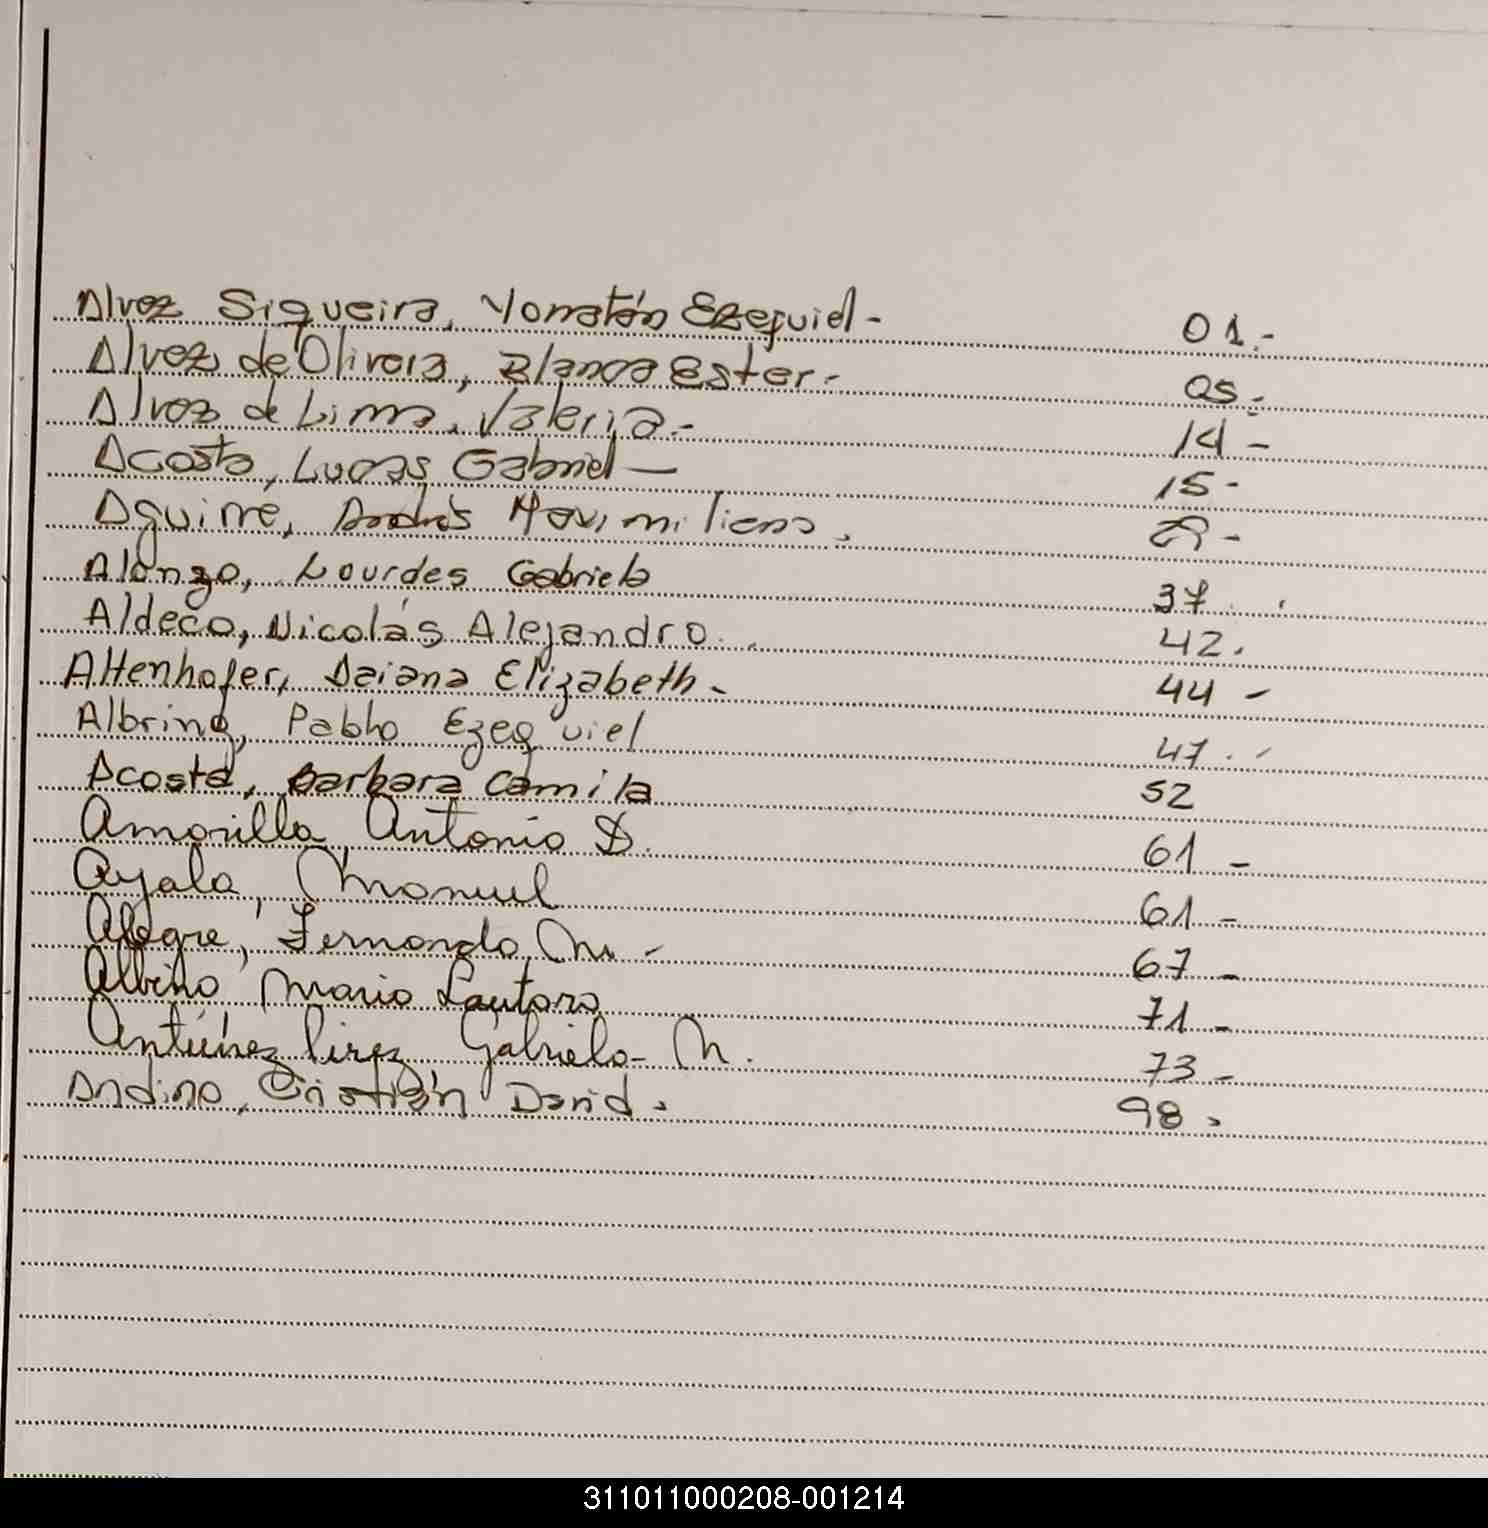 Alvez Siqueira, Yonatán Ezequiel - 01.-
Alvez de Olivera, Blanca Ester.- 05.-
Alvez de Lima, Valeria.- 14 -
Acosta, Lucas Gabriel — 15 -
Aguirre, Andrés Maximiliano. -
Alonzo, Lourdes Gabriela 37.
Aldeco, Nicolás Alejandro. 42.
Altenhofer, Daiana Elizabeth - 44 -
Albring, Pabho Ezequiel 47.
Acosta, Barbara Camila 52
Amarilla, Antonio D. 61 -
Ayala, Manuel 61 -
Alegre, Fernando M. - 67 -
Albino Mario Lautaro 71 -
Antúnez Pirez Gabriela M. 73 -
Andino, Cristián David. 98.
311011000208-001214